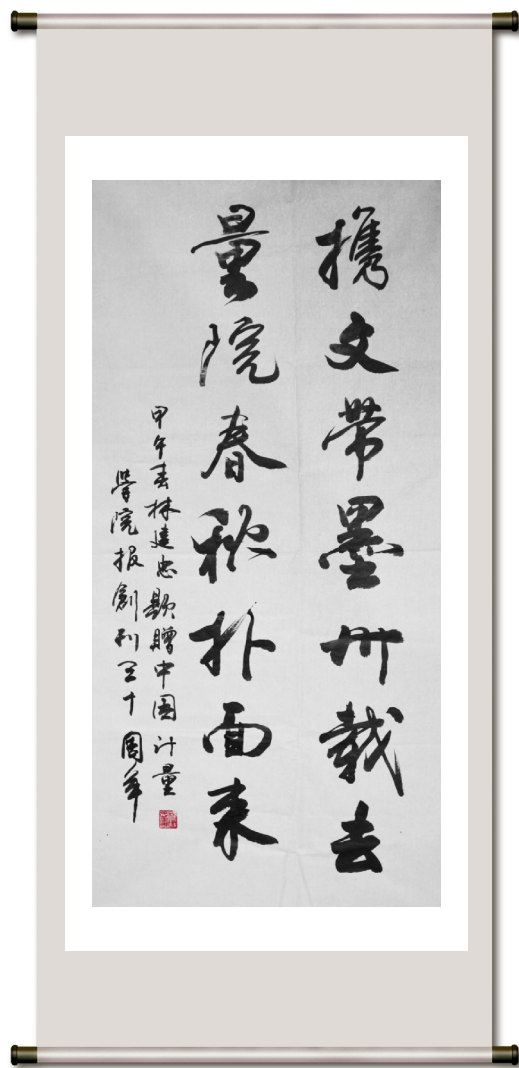 携文帶墨卅載去
量院春秋扑面来
甲午春林建忠題贈中国计量
学院报創刊三十周年